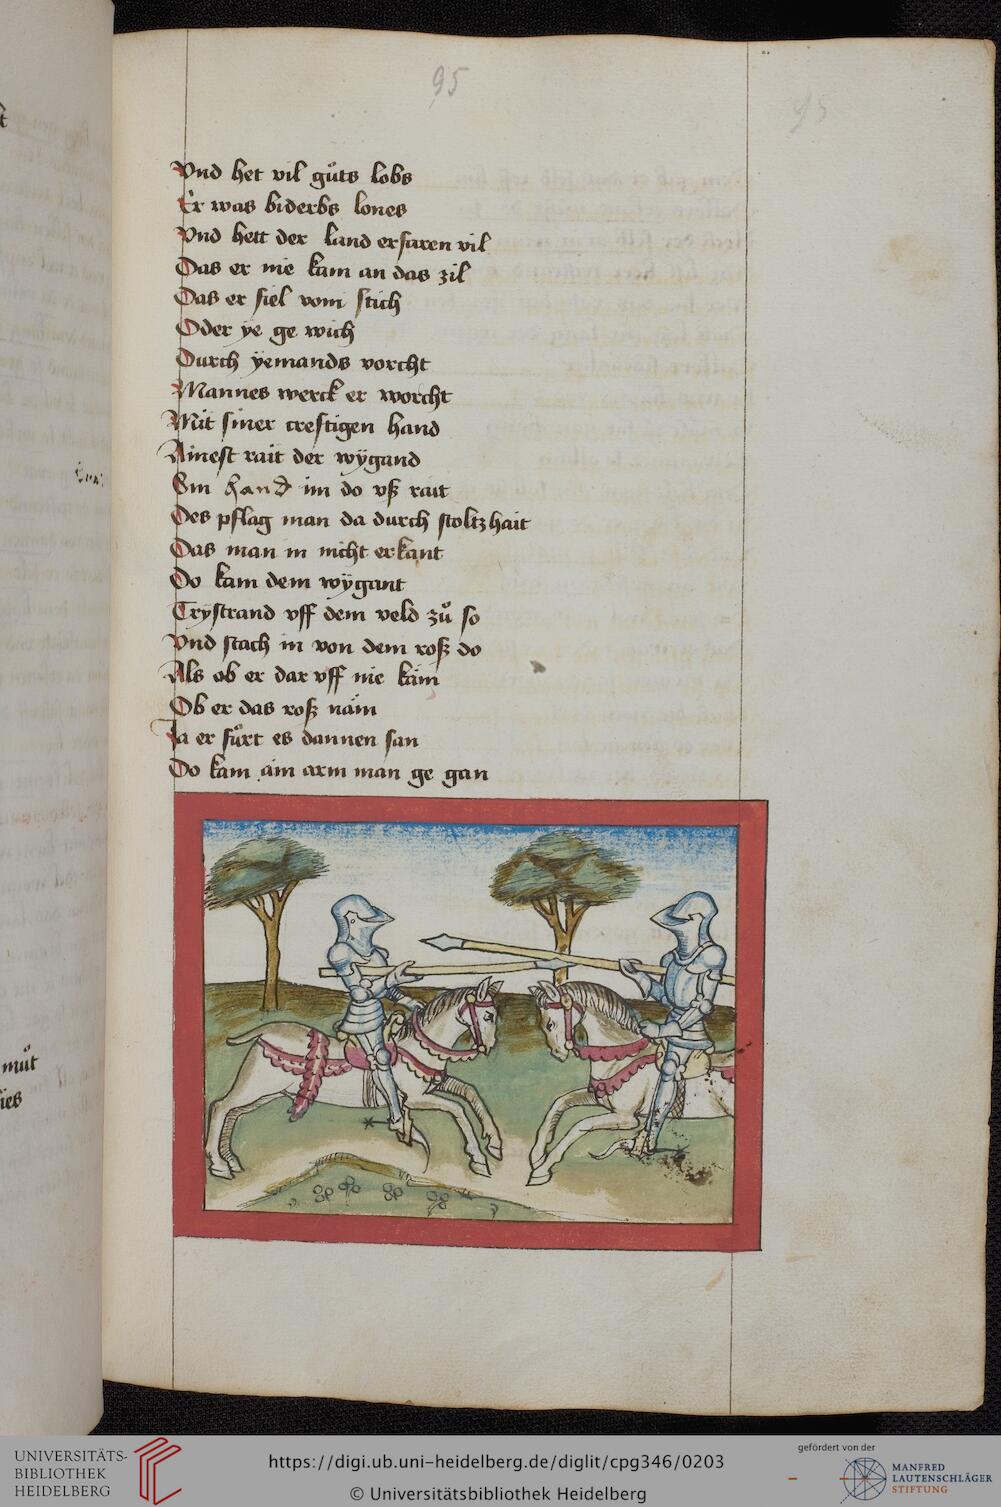 95
95
Vnd het vil gůts lobs
Er was biderbs lones
Vnd hett der land erfaren vil
Das er nie kam an das zil
Das er fiel vom stich
Oder ÿe ge wich
Durch ÿemands vorcht
Mannes werck er worcht
Mit siner creftigen hand
Ainest rait der wÿgand
Ein hand im do vß rait
Des pflag man da durch stoltzhait
Das man in nicht erkant
Do kam dem wÿgant
Trÿstrand vff dem veld zů so
Vnd stach in von dem roß do
Als ob er dar vff nie käm
Ob er das roß näm
Ja er fůrt es dannen san
Do kam ain arm man ge gan
můt
UNIVERSITÄTS-
BIBLIOTHEK
HEIDELBERG
https://digi.ub.uni-heidelberg.de/diglit/cpg346/0203
© Universitätsbibliothek Heidelberg
gefördert von der
MANFRED
LAUTENSCHLÄGER
STIFTUNG